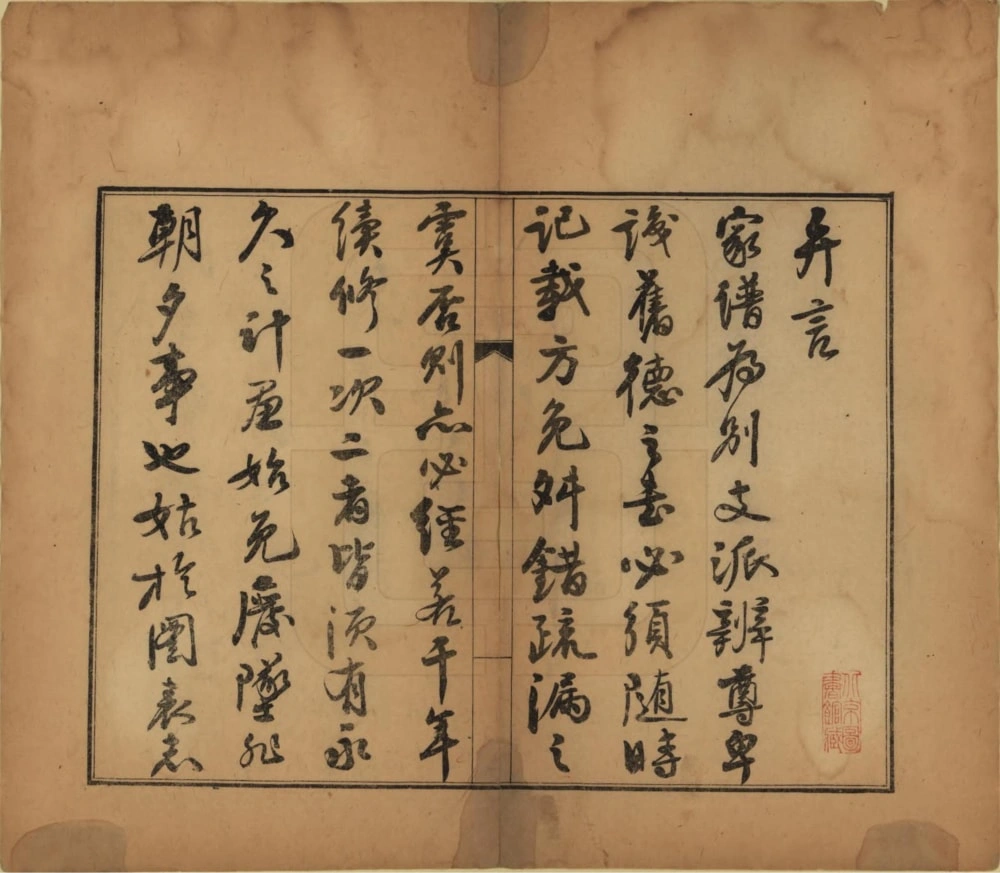 弁言
家譜為別支派辨尊卑
識舊德之書必須隨時
記載方免舛錯疏漏之
虞否則亦必經若干年
續修一次二者皆須有永
久之計畫始免廢墜非
朝夕事也姑於圖表志